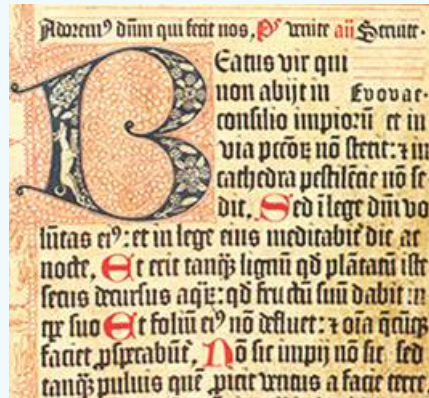 Adorem⁹ dūm qui fecit nos, P͛s venite añ Servite.
Beatus vir qui
non abijt in Evovae.
consilio impiorū et in
via pccōꝝ nō stetit: ⁊ in
cathedra pestilēcie nō se
dit, Sed ī lege dūi vo
lūtas ei⁹: et in lege eius meditabit̄ die ac
nocte, Et erit tanqꝫ lignū qd̄ plātatū iste
secus decursus aqꝝ: qd̄ fructū suū dabit in
tꝑe suo Et foliū ei⁹ nō defluet: ⁊ oīa q̄cūqꝫ
faciet ꝓsperabūt̄, Nō sic impij nō sic sed
tanqꝫ puluis quē ꝓicit ventus a facie terre,